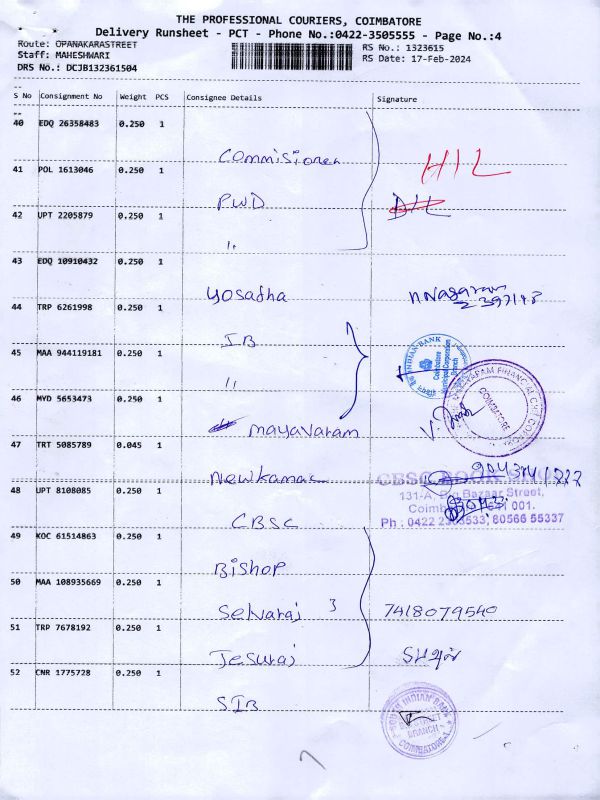 THE PROFESSIONAL COURIERS, COIMBATORE
Delivery Runsheet - PCT - Phone No.:0422-3505555 - Page No.:4
Route: OPANAKARASTREET
RS No.: 1323615
Staff: MAHESHWARI
RS Date: 17-Feb-2024
DRS No.: DCJB132361504
S No Consignment No Weight PCS Consignee Details Signature
40 EDQ 26358483 0.250 1
Commisioner
HIL
41 POL 1613046 0.250 1
PWD
42 UPT 2205879 0.250 1
"
43 EDQ 10910432 0.250 1
Yosadha
44 TRP 6261998 0.250 1
IB
INDIAN-BANK
45 MAA 944119181 0.250 1
"
46 MYD 5653473 0.250 1
mayavaram
COIMBATORE
47 TRT 5085789 0.045 1
Newkamac
CBSC BOOK
131-A, Big Bazaar Street,
48 UPT 8108085 0.250 1
CBSC
001.
Ph : 0422 533, 80566 55337
49 KOC 61514863 0.250 1
Bishop
50 MAA 108935669 0.250 1
Selvaraj 3 7418079540
51 TRP 7678192 0.250 1
Jesuraj
52 CNR 1775728 0.250 1
SIB
SOUTH INDIAN BANK
BRANCH
COIMBATORE-1